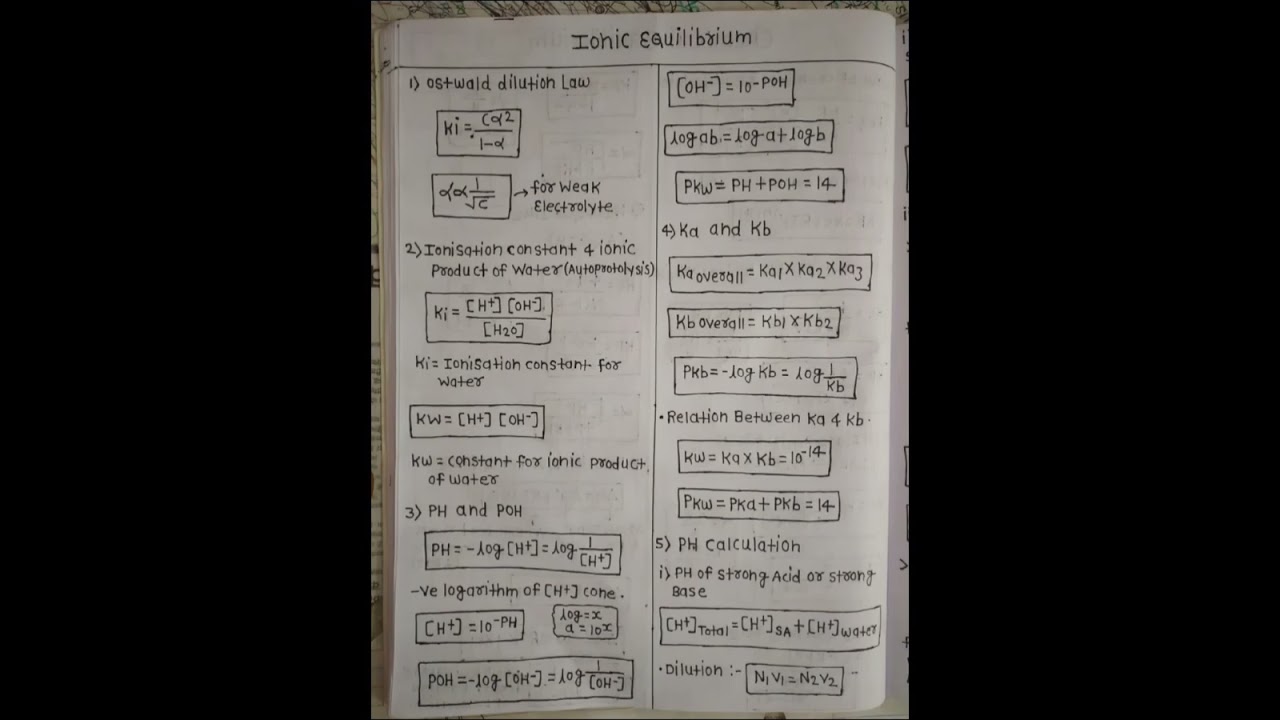 Ionic Equilibrium
1) Ostwald dilution Law
Ki = Cα2 / 1-α
α∝ 1/√C → for weak
Electrolyte
2) Ionisation constant & ionic
Product of water (Autoprotolysis)
Ki = [H+] [OH-] / [H2O]
Ki = Ionisation constant for
water
KW = [H+] [OH-]
KW = constant for ionic product
of water
3) PH and POH
PH = -log [H+] = log 1/[H+]
-ve logarithm of [H+] conc.
[H+] = 10-PH
log = x
a = 10x
POH = -log [OH-] = log 1/[OH-]
[OH-] = 10-POH
log ab = log a + log b
PKw = PH + POH = 14
4) Ka and Kb
Ka overall = Ka1 × Ka2 × Ka3
Kb overall = Kb1 × Kb2
PKb = -log Kb = log 1/Kb
• Relation Between Ka & Kb.
KW = Ka × Kb = 10-14
PKw = PKa + PKb = 14
5) PH calculation
i) PH of strong Acid or strong
Base
[H+]Total = [H+]SA + [H+]water
• Dilution :- N1V1 = N2V2